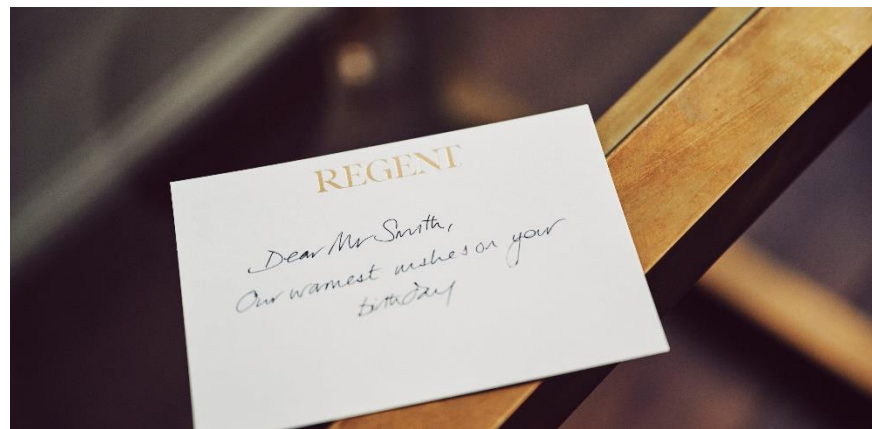 REGENT
Dear Mr Smith,
Our warmest wishes on your
birthday